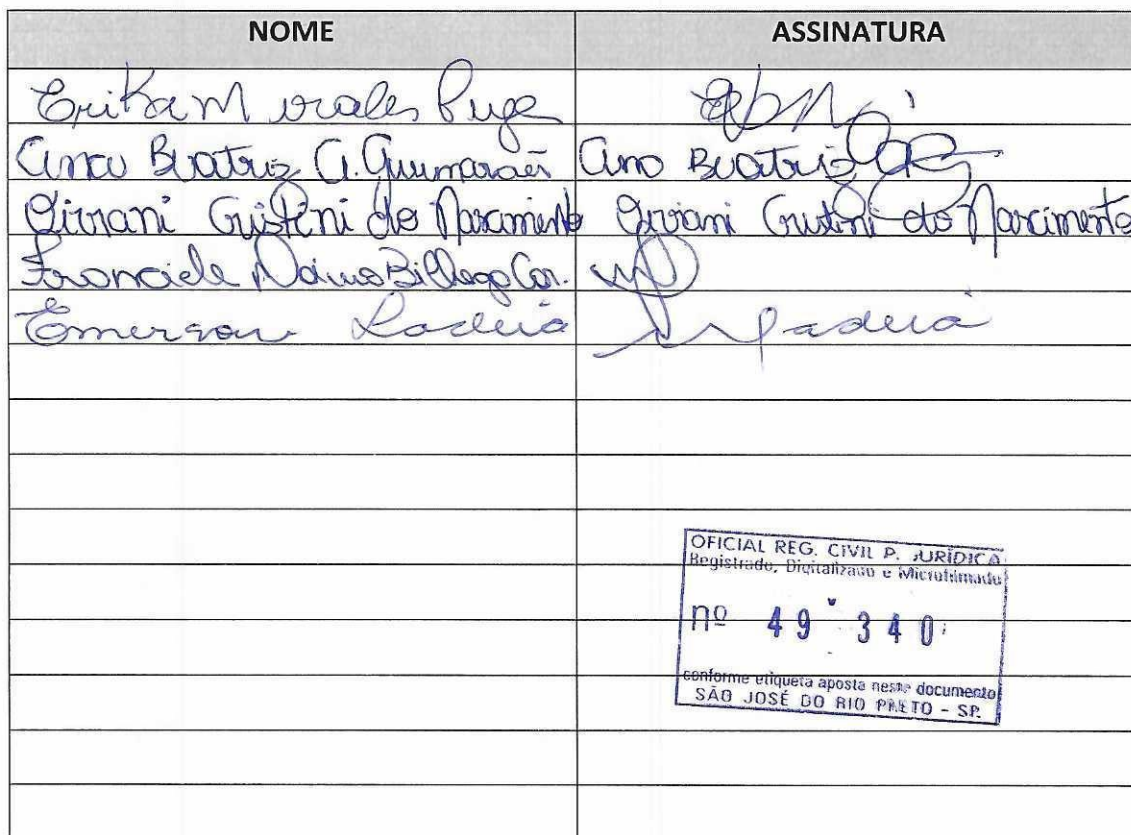 NOME ASSINATURA
Erika Morales Puga
Ana Beatriz A. Guimarães Ana Beatriz
Giviani Cristini do Nascimento Giviani Cristini do Nascimento
Franciele
Emerson Ladeia Ladeia
OFICIAL REG. CIVIL P. JURÍDICA
Registrado, Digitalizado e Microfilmado
nº 49 340
conforme etiqueta aposta neste documento
SÃO JOSÉ DO RIO PRETO - SP.